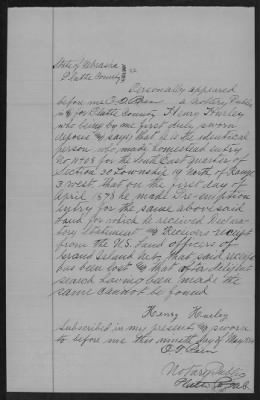 State of Nebraska } ss
Platte County }
Personally appeared
before me a Notary Public
in & for Platte County Henry Hurley
who being by me first duly sworn
deposes & says that he is the identical
person who made homestead entry
No 11708 for the South East quarter of
Section 30 Township 19 North of Range
3 West, that on the first day of
April 1878 he made Pre-emption
entry for the same above said
land for which he received
Statement & Receivers receipt
from the U.S. Land officers of
Grand Island Neb, that said receipt
has been lost & that after deligent
search having been made the
same cannot be found
Henry Hurley
Subscribed in my present & sworn
to before me this day of May
Notary Public
Platte Co Neb